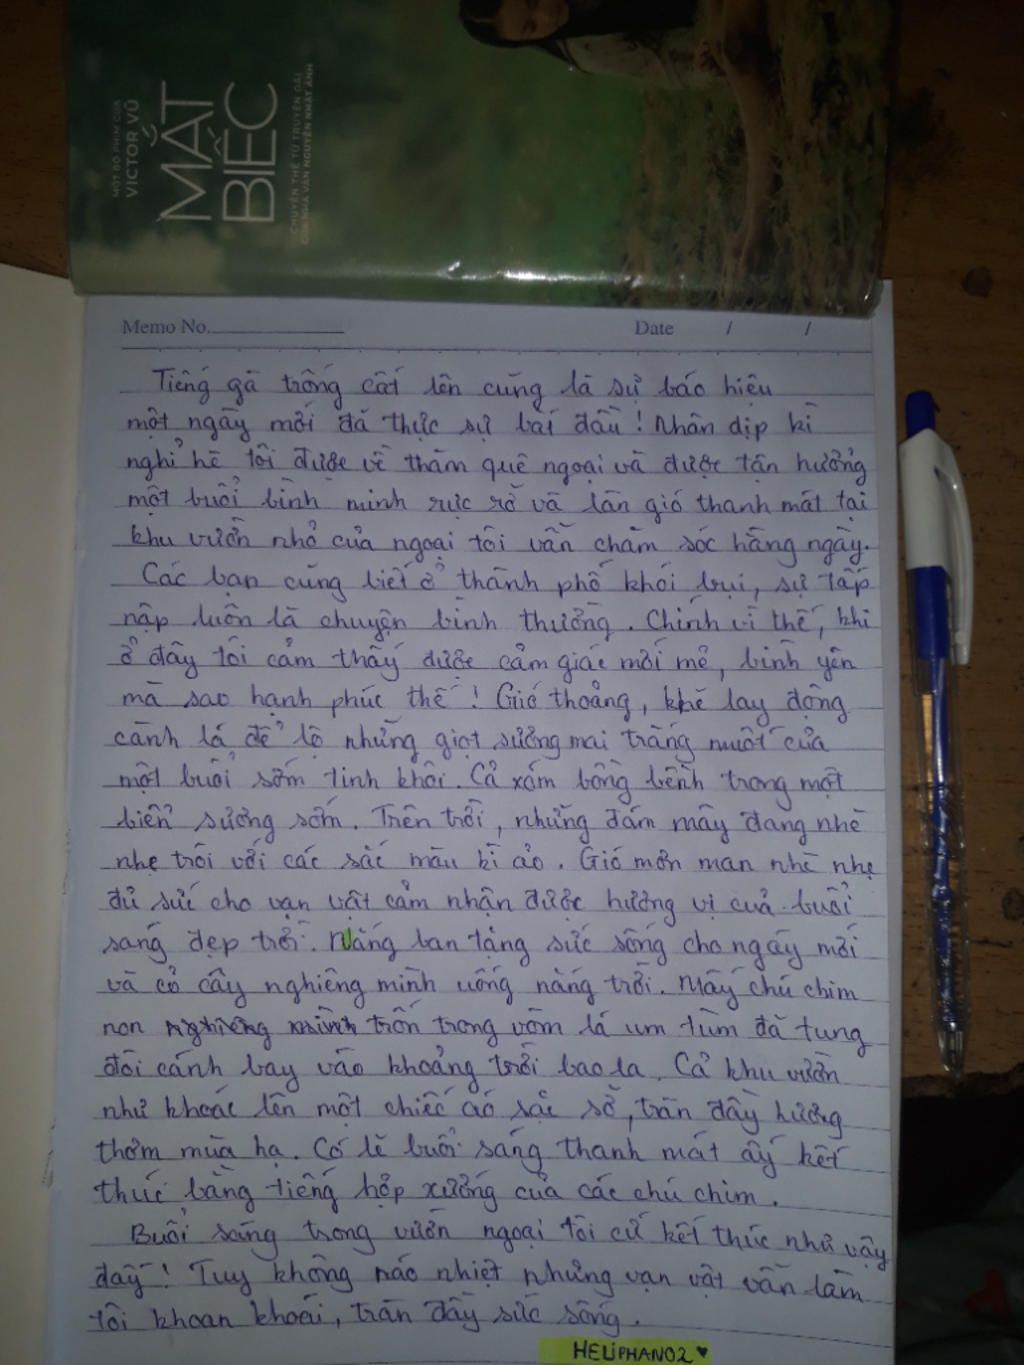 MỘT BỘ PHIM CỦA
VICTOR VŨ
MẮT
BIẾC
CHUYỂN THỂ TỪ TRUYỆN DÀI
CỦA NHÀ VĂN NGUYỄN NHẬT ÁNH
Memo No.
Date / /
Tiếng gà trống cất lên cũng là sự báo hiệu
một ngày mới đã thực sự bắt đầu! Nhân dịp kì
nghỉ hè tôi được về thăm quê ngoại và được tận hưởng
một buổi bình minh rực rỡ và làn gió thanh mát tại
khu vườn nhỏ của ngoại tôi vẫn chăm sóc hằng ngày.
Các bạn cũng biết ở thành phố khói bụi, sự tấp
nập luôn là chuyện bình thường. Chính vì thế, khi
ở đây tôi cảm thấy được cảm giác mới mẻ, bình yên
mà sao hạnh phúc thế! Gió thoảng, khẽ lay động
cành lá để lộ những giọt sương mai trắng muốt của
một buổi sớm tinh khôi. Cả xóm bồng bềnh trong một
biển sương sớm. Trên trời, những đám mây đang nhè
nhẹ trôi với các sắc màu kì ảo. Gió mơn man nhè nhẹ
đủ sức cho vạn vật cảm nhận được hương vị của buổi
sáng đẹp trời. Nắng ban tặng sức sống cho ngày mới
và cỏ cây nghiêng mình uống nắng trời. Mấy chú chim
non trốn trong vòm lá um tùm đã tung
đôi cánh bay vào khoảng trời bao la. Cả khu vườn
như khoác lên một chiếc áo sặc sỡ, tràn đầy hương
thơm mùa hạ. Có lẽ buổi sáng thanh mát ấy kết
thúc bằng tiếng hợp xướng của các chú chim.
Buổi sáng trong vườn ngoại tôi cứ kết thúc như vậy
đấy! Tuy không náo nhiệt nhưng vạn vật vẫn làm
tôi khoan khoái, tràn đầy sức sống.
HELIPHAN02 ♥